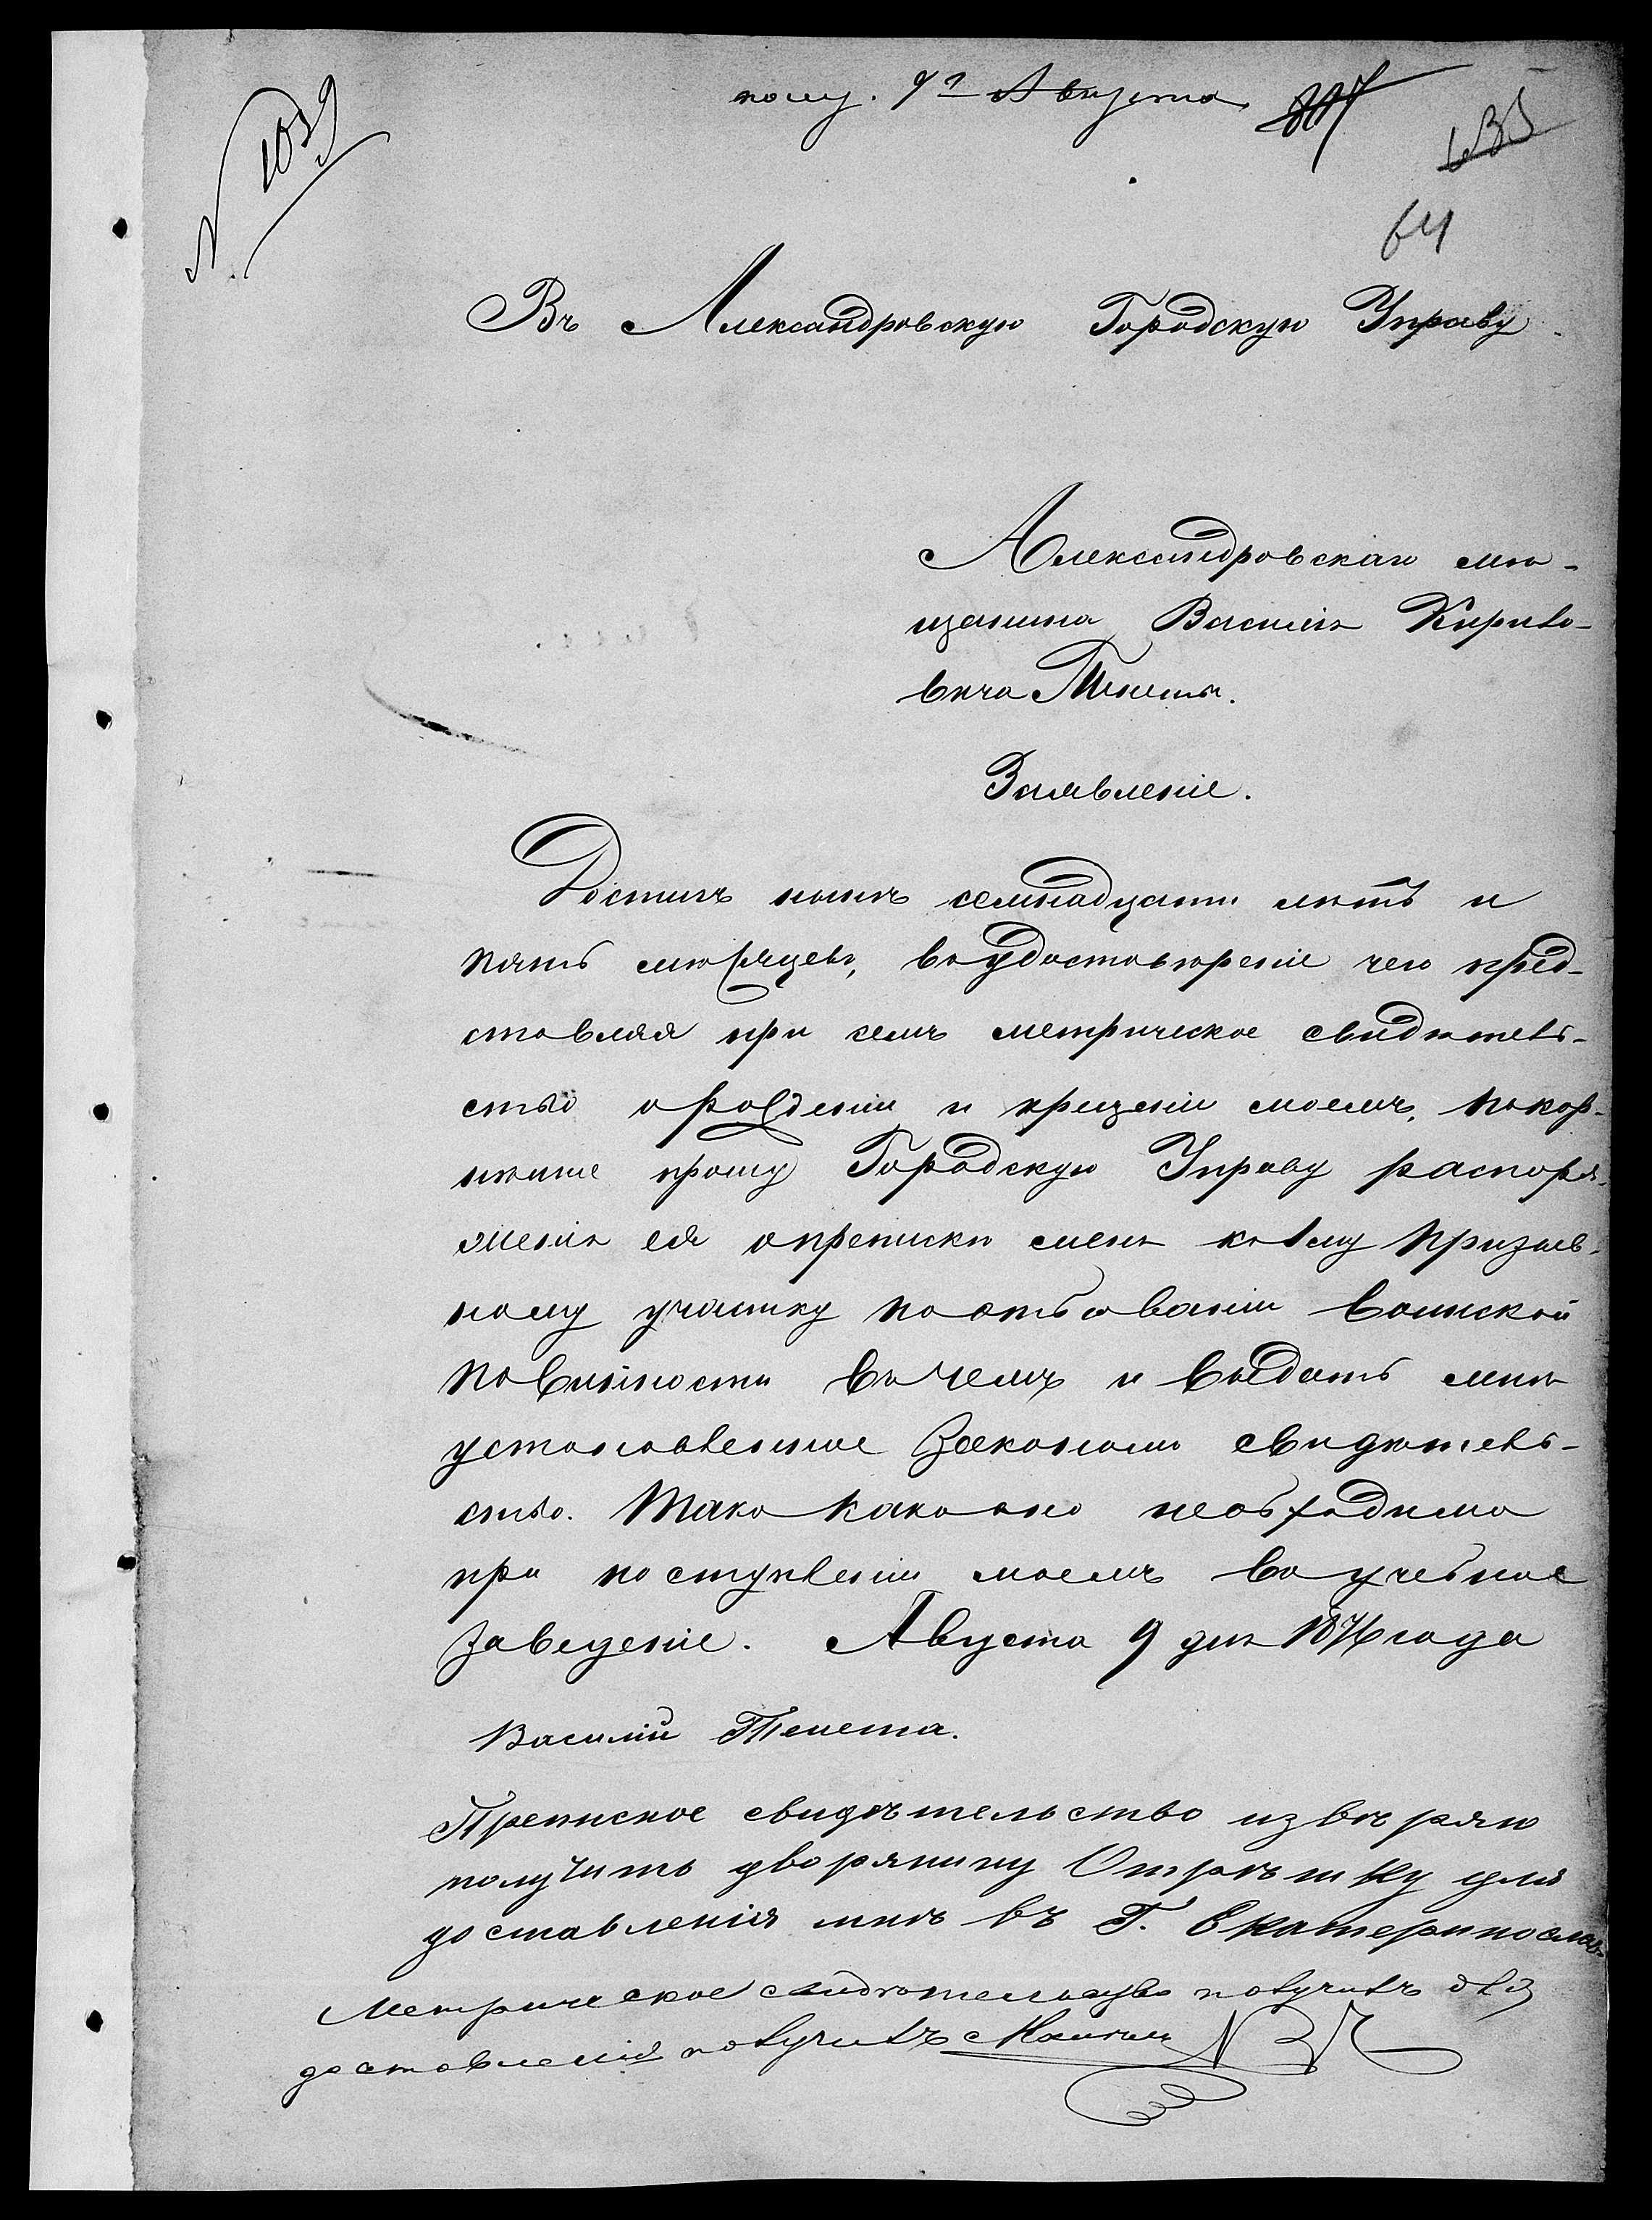 получ. 9го Августа
№ 1039
64
Въ Александровскую Городскую Управу.
Александровскаго мѣ-
щанина Василія Кирило-
вича Тенеты.
Заявленіе.
Достигъ нынѣ семнадцати лѣтъ и
пять мѣсяцевъ, въ удостовѣреніе чего пред-
ставляя при семъ метрическое свидѣтель-
ство о рожденіи и крещеніи моемъ, покор-
нѣйше прошу Городскую Управу распоря-
женія ея о препискѣ меня къ 1му призыв-
ному участку по отбыванію воинской
повинности въ чемъ и выдать мнѣ
установленное закономъ свидѣтель-
ство. Такъ какъ оно необходимо
при поступленіи моемъ въ учебное
заведеніе. Августа 9 дня 1876 года
Василій Тенета.
Преписное свидѣтельство извѣряю
получить дворянину Отрѣшку для
доставленія мнѣ въ Г. Екатеринослав-
Метрическое свидѣтельство получилъ для
доставленія получилъ